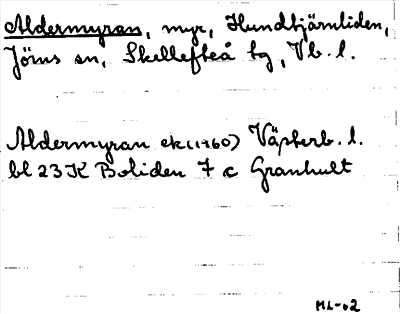 Aldermyran, myr, Hundtjärnliden,
Jörns sn, Skellefteå tg, Vb. l.
Aldermyran ek (1960) Västerb. l.
bl 23 K Boliden 7 c Granhult
ML-02